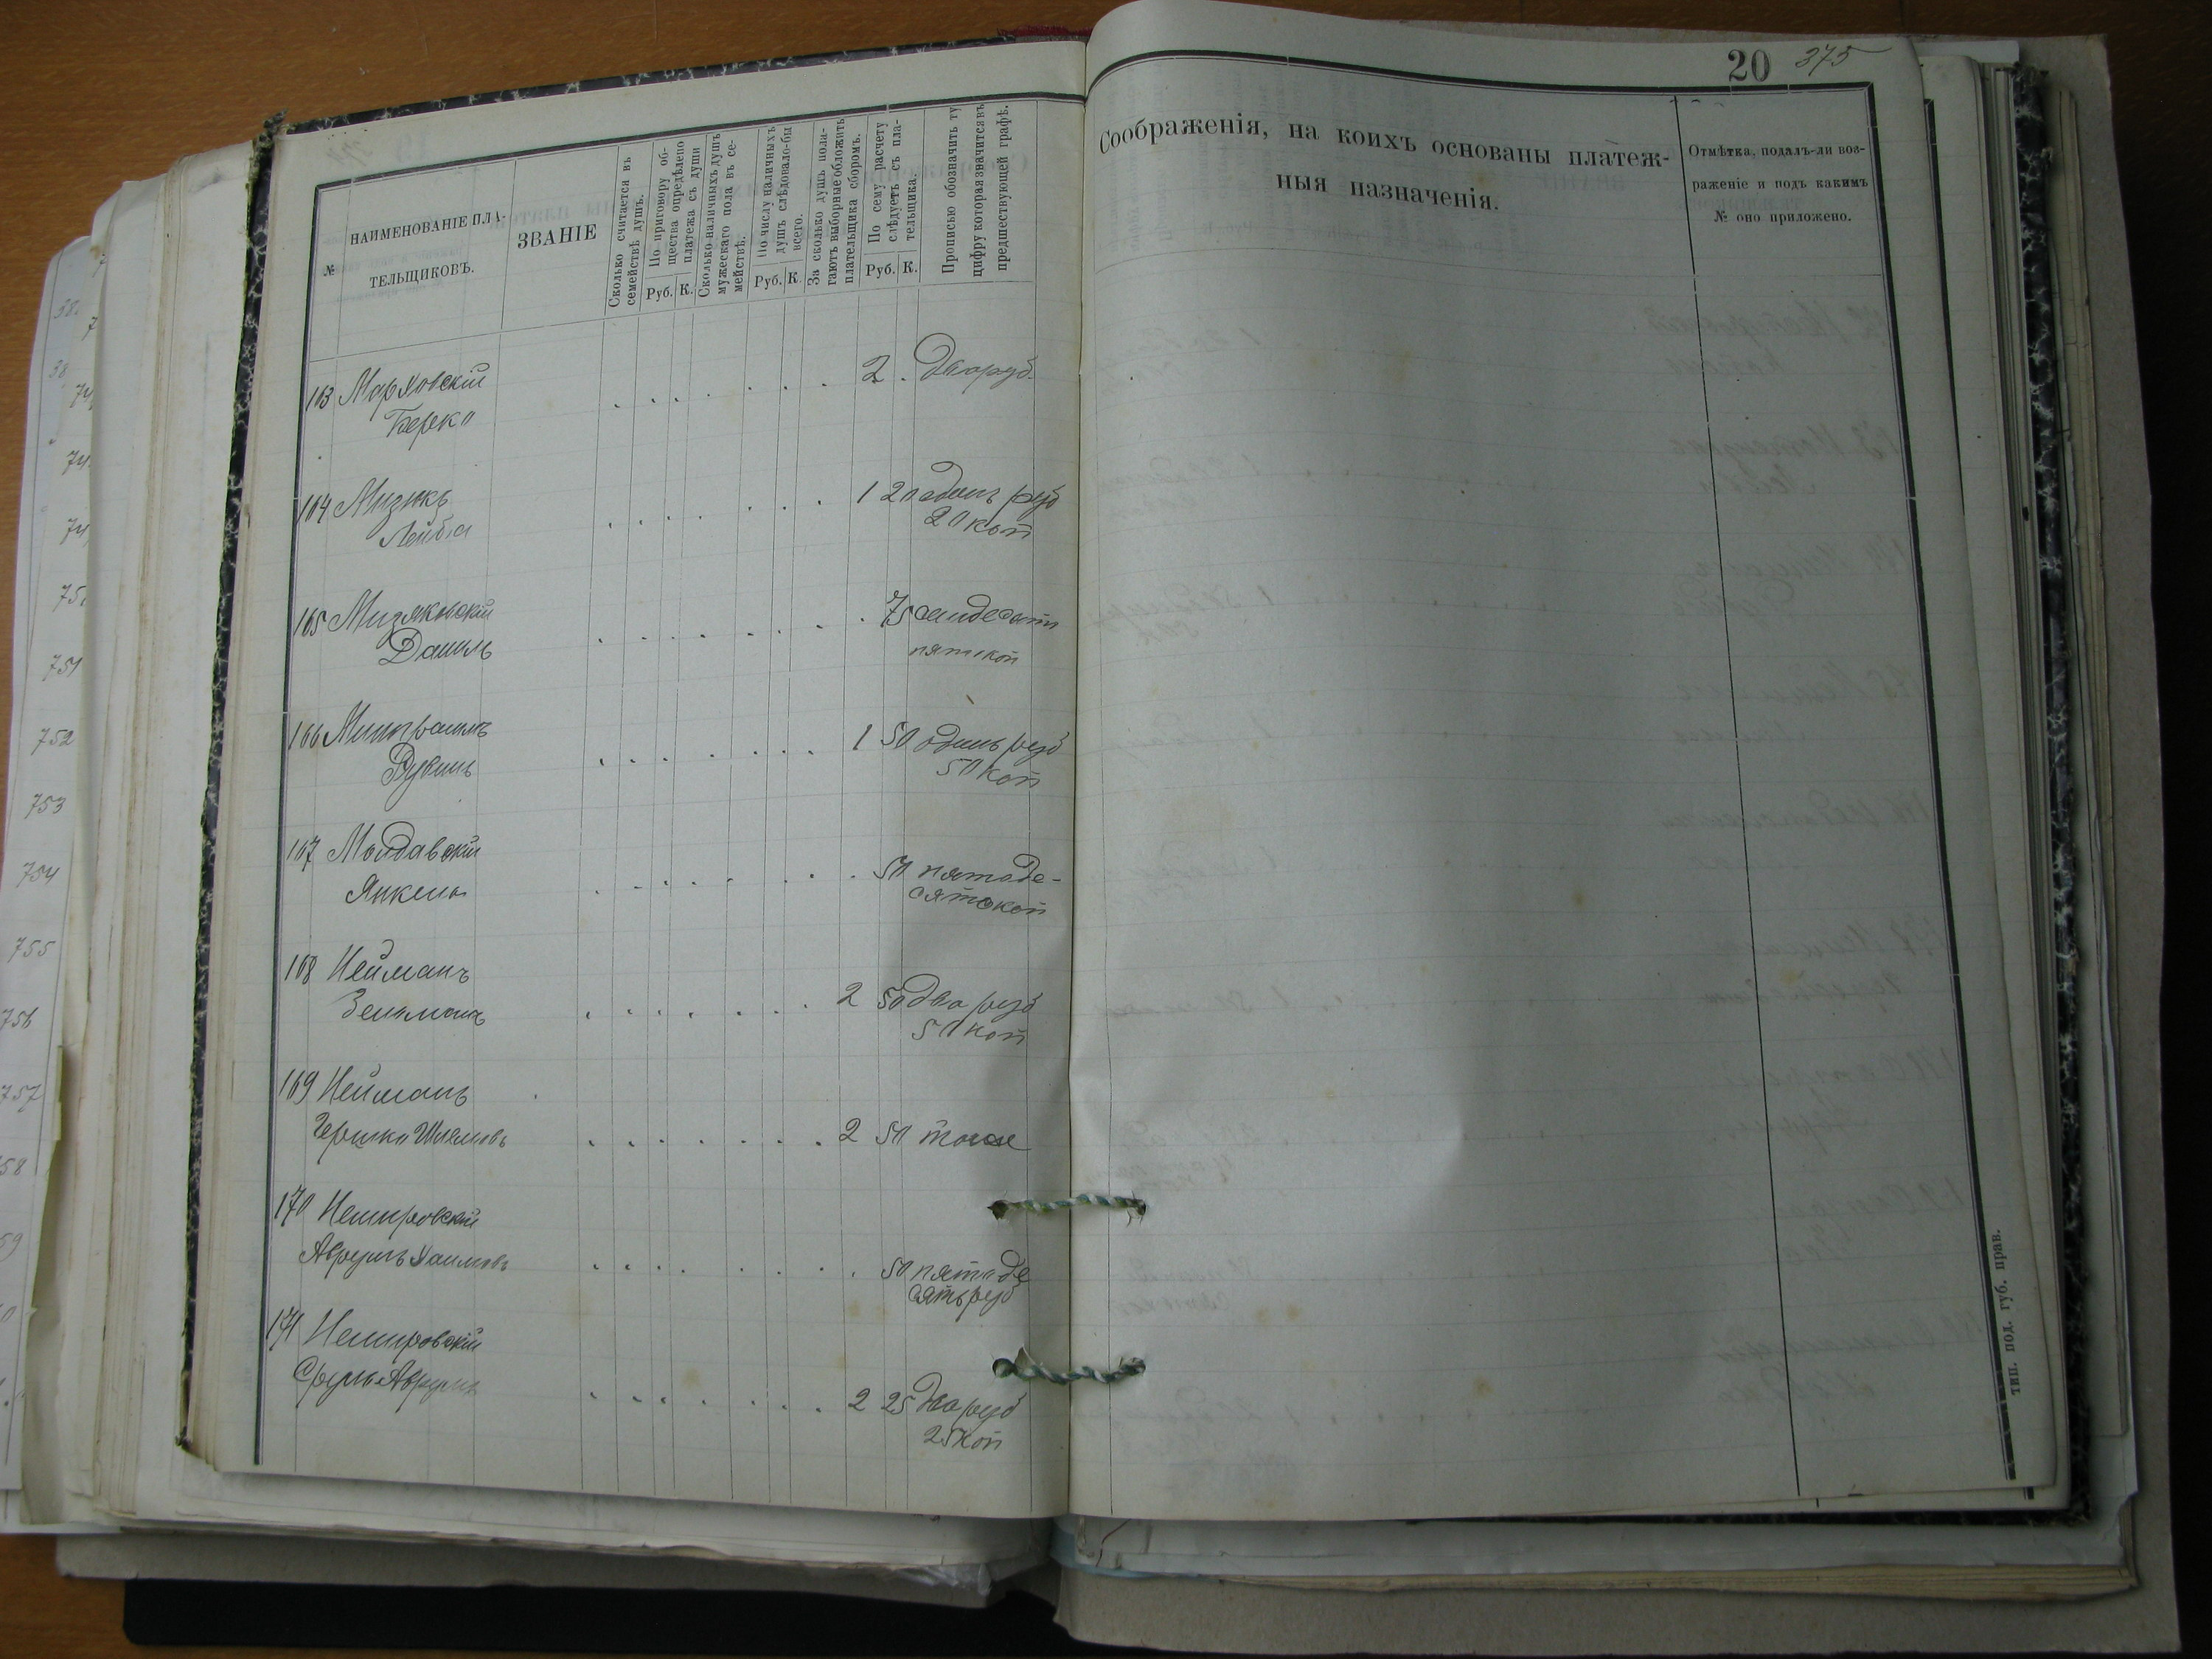 №
НАИМЕНОВАНІЕ ПЛА-
ТЕЛЬЩИКОВЪ.
ЗВАНІЕ
Сколько считается въ
семействѣ душъ.
По приговору об-
щества опредѣлено
платежа съ души
Руб. К.
Сколько наличныхъ душъ
мужескаго пола въ се-
мействѣ.
По числу наличныхъ
душъ слѣдовало-бы
всего.
Руб. К.
За сколько душъ пола-
гаютъ выборные обложить
плательщика сборомъ.
По сему расчету
слѣдуетъ съ пла-
тельщика.
Руб. К.
Прописью обозначить ту
цифру которая значится въ
предшествующей графѣ.
163 Марховскій 2 два руб.
Берко
164 Мизикъ 1 20 одинъ руб
Лейба 20 коп
165 Мизяковскій 75 семдесятъ
Даниль пять коп
166 1 50 одинъ руб
Рувинъ 50 коп
167 Молдавскій 50 пятьде-
Янкель сятъ коп
168 Нейманъ 2 50 два руб
Зельманъ 50 коп
169 Нейманъ
Гершко Шлемовъ 2 50 тоже
170 Немировскій
Аврумъ Хаимовъ 50 пятьде
сять руб
171 Немировскій
Сруль Аврумъ 2 25 два руб
25 коп
20 375
Соображенія, на коихъ основаны платеж-
ныя назначенія.
Отмѣтка, подалъ-ли воз-
раженіе и подъ какимъ
№ оно приложено.
тип. под. губ. прав.
751
752
753
754
755
756
757
58
59